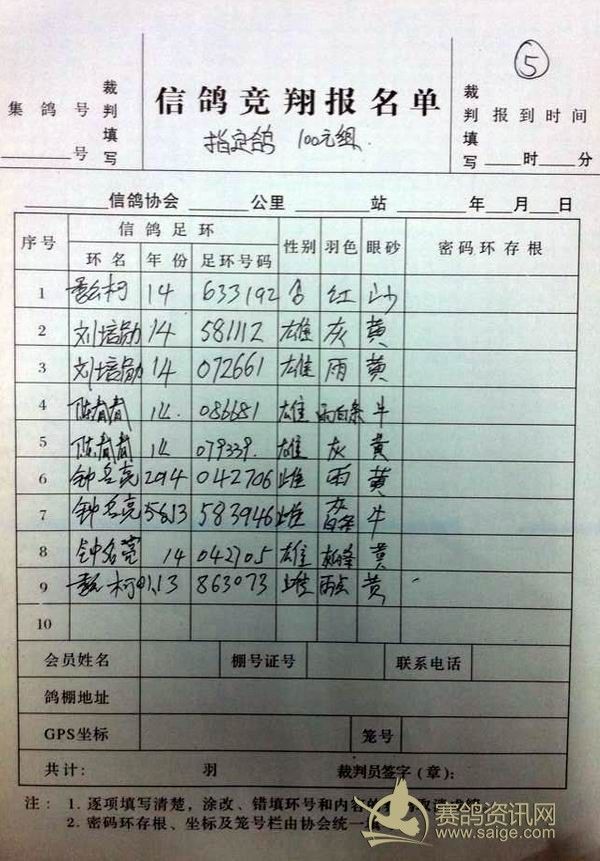 ⑤
集鸽号 裁判填写 信鸽竞翔报名单 裁判填写 报到时间
号 指定鸽 100元组. 时 分
信鸽协会 公里 站 年 月 日
序号 信鸽足环 性别 羽色 眼砂 密码环存根
环名 年份 足环号码
1 柯 14 633192 红 砂
2 刘培勋 14 581112 雄 灰 黄
3 刘培勋 14 072661 雄 雨 黄
4 陈 14. 086681 雄 雨白条 牛
5 陈 14 079339. 雄 灰 黄
6 钟名亮 2014 042706 雌 雨 黄
7 钟名亮 13 583946 雌 灰白条 牛
8 钟名亮 14 042705 雄 黄
9 柯 13 863073 雌 雨点 黄
10
会员姓名 棚号证号 联系电话
鸽棚地址
GPS坐标 笼号
共计: 羽 裁判员签字(章):
注: 1. 逐项填写清楚,涂改、错填环号和内容的
2. 密码环存根、坐标及笼号栏由协会统一
赛鸽资讯网
www.saige.com